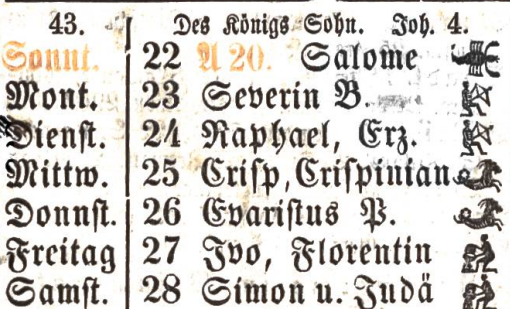 43. Des Königs Sohn. Joh. 4.
Sonnt. 22 A 20. Salome
Mont. 23 Severin B.
Dienst. 24 Raphael, Erz.
Mittw. 25 Crisp, Crispinian
Donnst. 26 Evaristus P.
Freitag 27 Ivo, Florentin
Samst. 28 Simon u. Judä